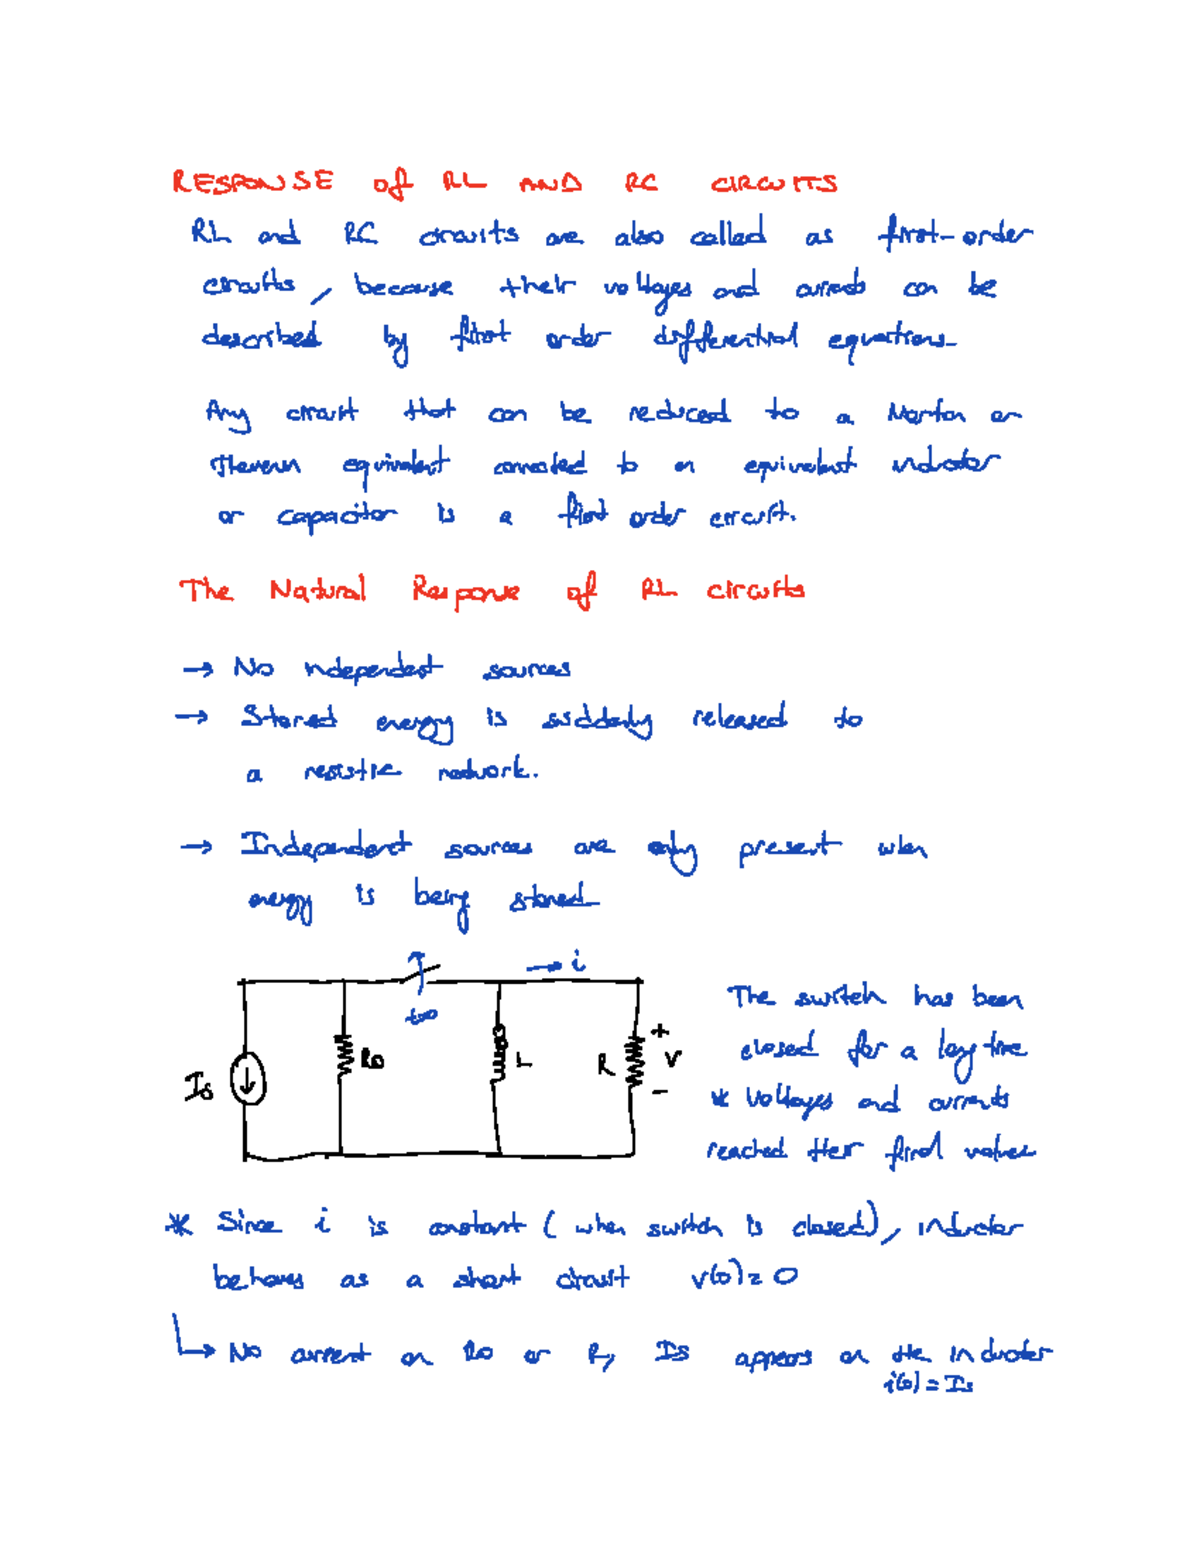 RESPONSE of RL AND RC CIRCUITS
RL and RC circuits are also called as first-order
circuits, because their voltages and currents can be
described by first order differential equations.
Any circuit that can be reduced to a Norton or
Thevenin equivalent connected to an equivalent inductor
or capacitor is a first order circuit.
The Natural Response of RL circuits
→ No independent sources
→ Stored energy is suddenly released to
a resistive network.
→ Independent sources are only present when
energy is being stored
→ i
t=0
Is
R0
L
R
+
V
-
The switch has been
closed for a long time
* Voltages and currents
reached their final values
* Since i is constant (when switch is closed), inductor
behaves as a short circuit v(0)=0
→ No current on R0 or R, Is appears on the inductor
i(0) = Is